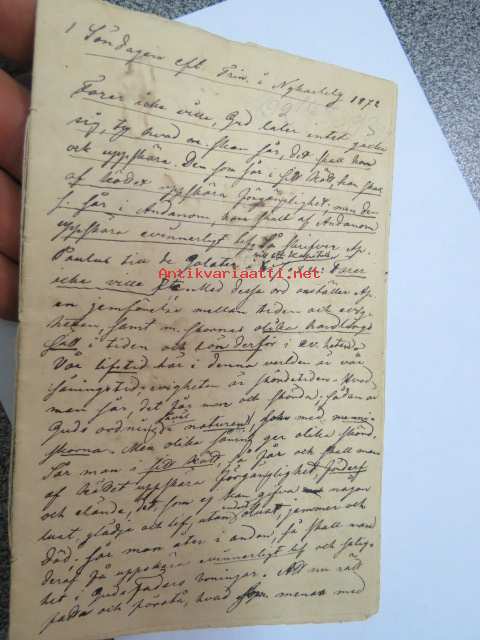 1 Söndagen eft. Trin. i Nykarleby 1872
Farer icke ville, Gud låter intet gäcka
sig, ty hvad m:skan sår, det skall hon
ock uppskära. Den som sår i sitt kött, han skall
af köttet uppskära förgängelighet, men den
s. sår i Andanom, han skall af Andanom
uppskära evinnerligt lif. Så skrifver Ap.
Paulus till de Galater i
Farer
icke ville Med dessa ord anställer Ap.
en jemförelse mellan tiden och evig-
heten, samt m:skornas olika
i tiden och
Vår lifstid här i denna verlden är vår
såningstid, evigheten är skördetiden. Hvad
man sår, det får man ock skörda, sådan är
Guds ordning i naturen, som med menni-
skorna. Men olika såning ger olika skörd.
Sår man i sitt kött, så får och skall man
af köttet uppskära förgängelighet, fördерf
och elände, det som ej kan gifva någon
lust, glädje och lif, utan jemmer och
död. Sår man åter i andan, så skall man
deraf få uppskära evinnerligt lif och salig-
het i Guds faders boningar. Att nu rätt
fatta och förstå, hvad menar med
Antikvariaatti.net